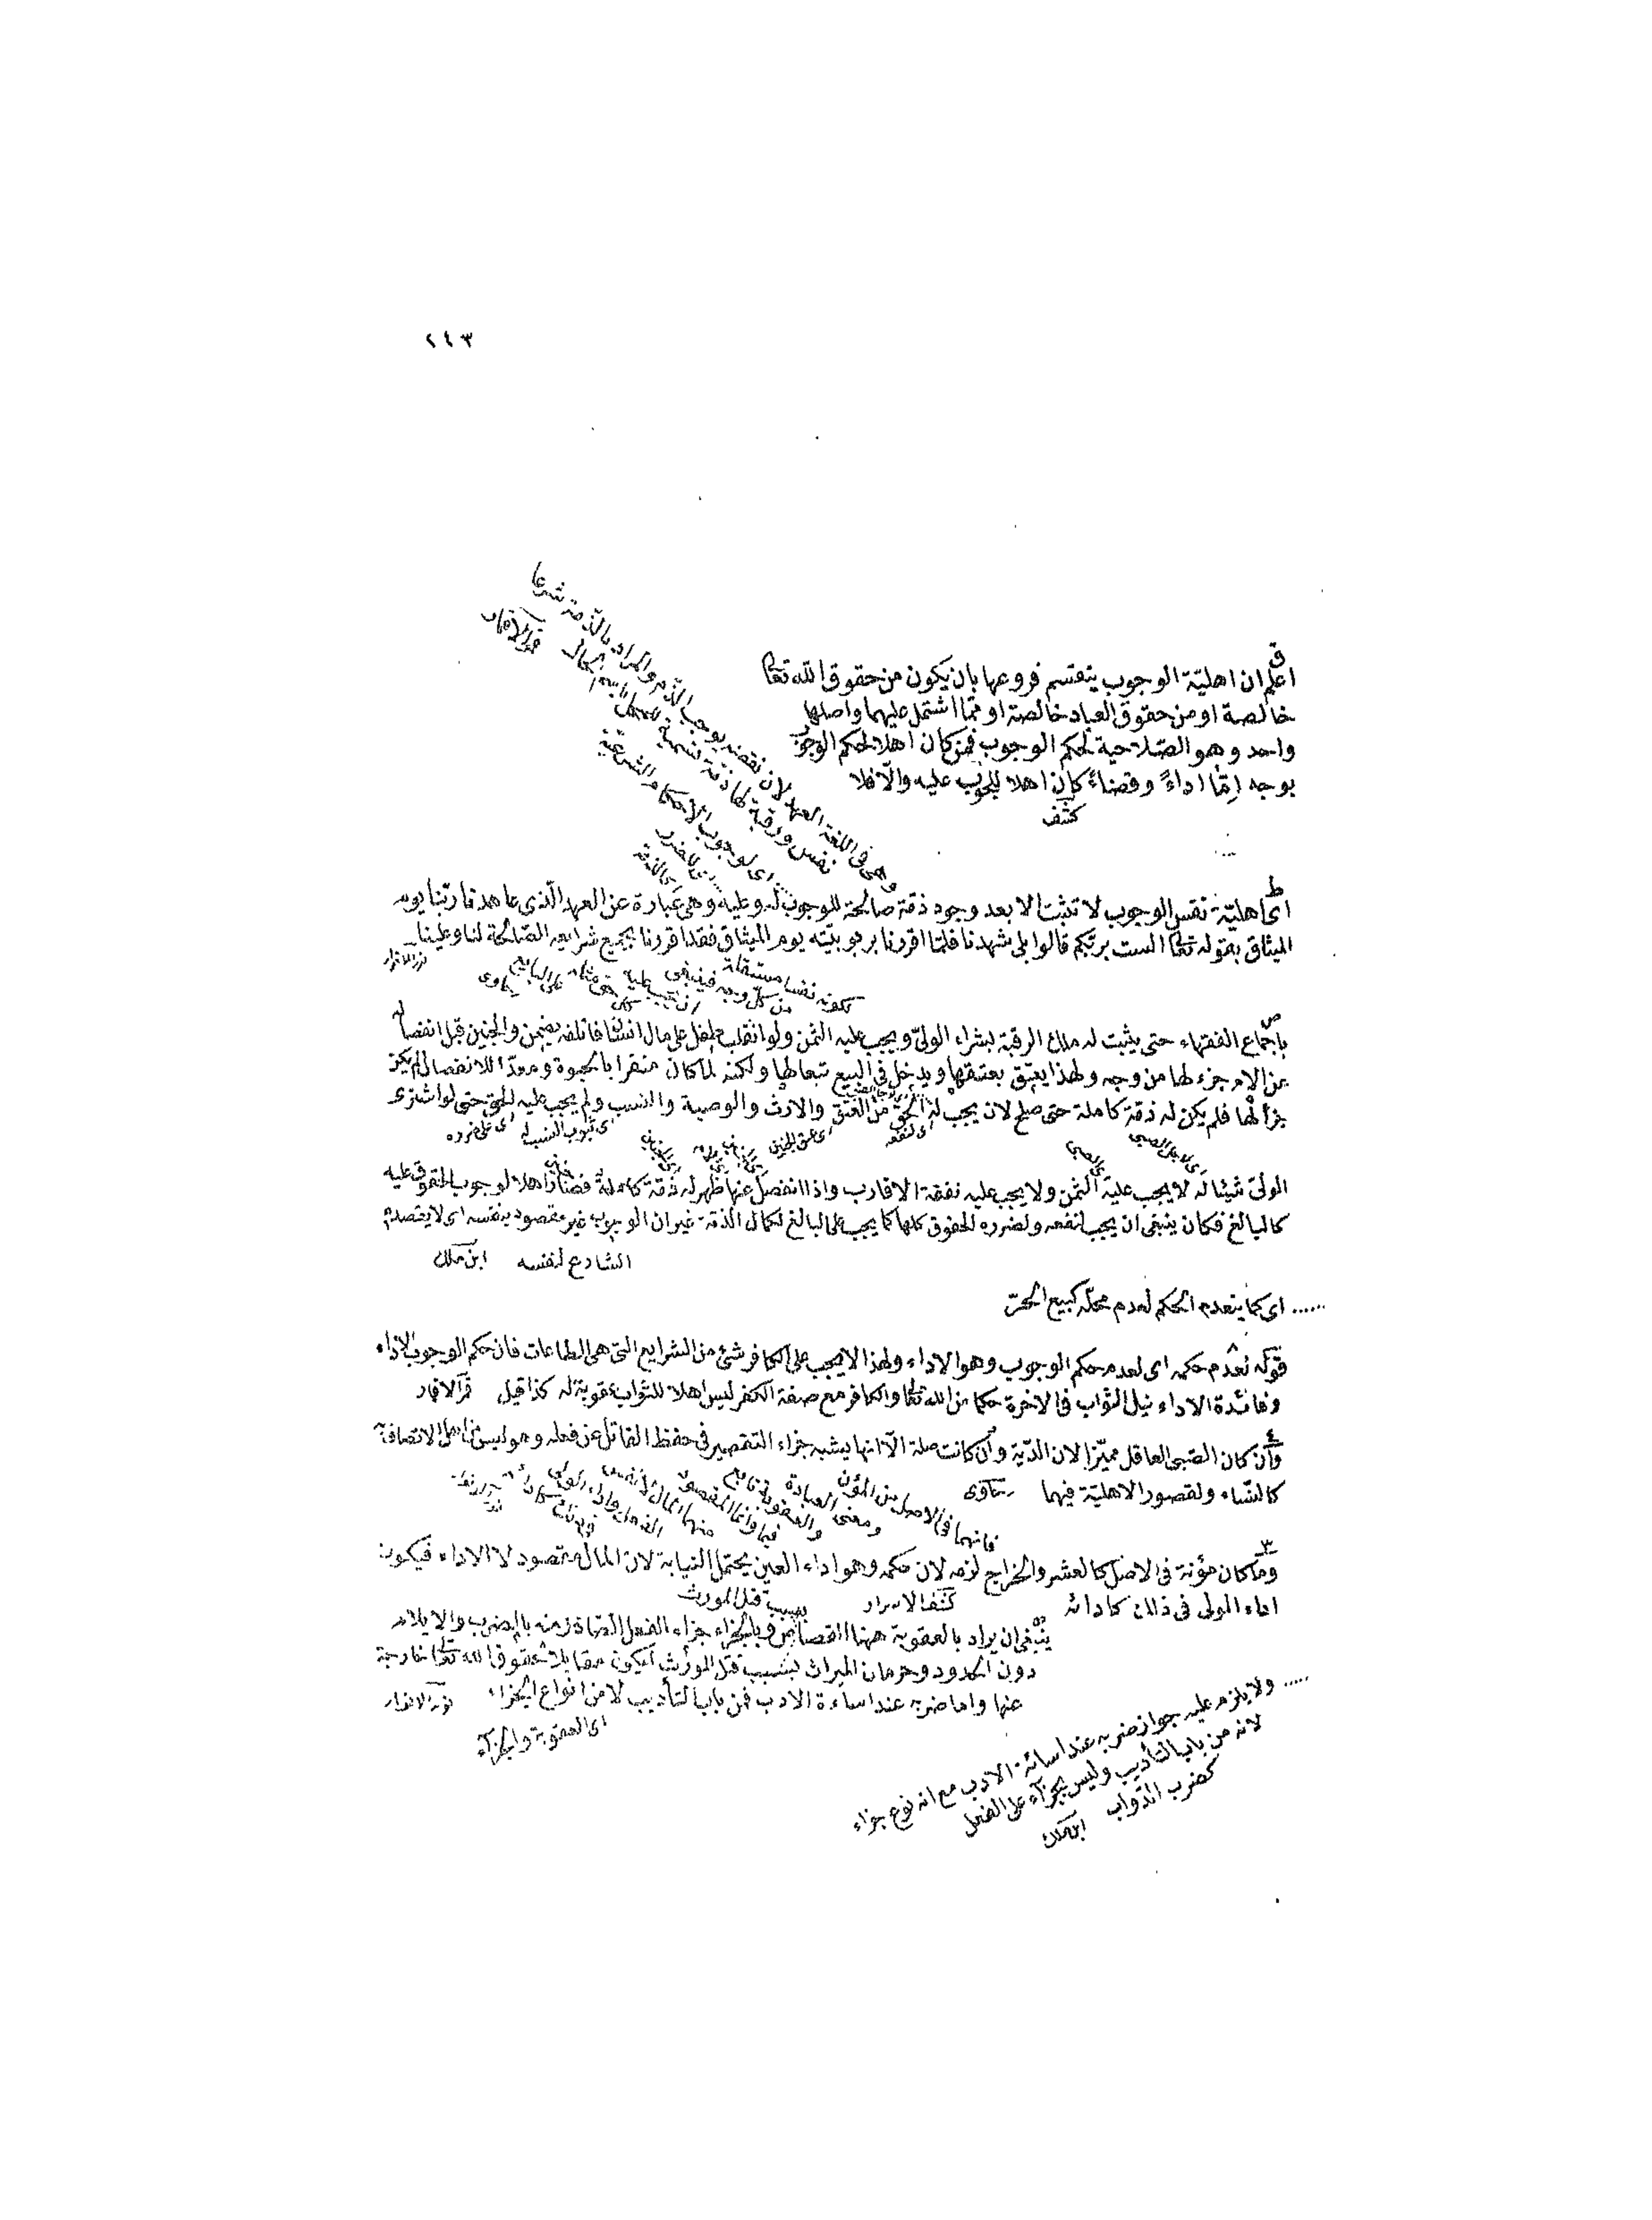 ٢٤٣
اعلم ان اهليّة الوجوب ينقسم فروعها بان يكون من حقوق الله تعا
خالصة او من حقوق العباد خالصة او مما اشتمل عليهما واصلها
واحد وهو الصّلاحية لحكم الوجوب فمن كان اهلا لحكم الوجوب
بوجه امّا اداءً وقضاءً كان اهلا للوجوب عليه والّا فلا
كشف
وهى فى اللغة العهد لان نقضه يوجب الذّم والمراد بالذّمة شرعا
نفس ورقبة لها ذمّة تسمية للمحل باسم الحال قمر الاقمار
اى لوجوب الاحكام الشرعيّة
اى اهليّة نفس الوجوب لا تثبت الا بعد وجود ذمّة صالحة للوجوب له وعليه وهى عبارة عن العهد الّذى عاهدنا ربّنا يوم
الميثاق بقوله تعا الست بربّكم قالوا بلى شهدنا فلمّا اقررنا بربوبيّته يوم الميثاق فقد اقررنا بجميع شرايعه الصّالحة لنا وعلينا نور الانوار
لكونه نفسا مستقلة من كلّ وجه فينبغى ان يجب عليه
باجماع الفقهاء حتى يثبت له ملك الرقبة بشراء الولىّ ويجب عليه الثمن ولو انقلب طفل على مال انسان فاتلفه يضمن والجنين قبل انفصاله
عن الام جزء لها من وجه ولهذا يعتق بعتقها ويدخل فى البيع تبعا لها ولكنه لما كان منفردا بالحيوة ومعدّا للانفصال لم يكن
جزأ لها فلم يكن له ذمّة كاملة حتى صلح لان يجب له الحق من العتق والارث والوصية والنسب ولم يجب عليه الحق حتى لو اشترى
اى لنفعه اى عتق الجنين اى ثبوت النسب له اى على ضرره
الولىّ شيئا له لا يجب عليه الثمن ولا يجب عليه نفقة الاقارب واذا انفصل عنها ظهر له ذمّة كاملة فصار اهلا لوجوب الحقوق عليه
كالبالغ فكان ينبغى ان يجب لنفعه ولضرره الحقوق كلها كما يجب على البالغ لكمال الذمّة غير ان الوجوب غير مقصود بنفسه اى لا يقصده
الشارع لنفسه ابن ملك
...... اى كما ينعدم الحكم لعدم محلّه كبيع الحرّ
قوله لعدم حكمه اى لعدم حكم الوجوب وهو الاداء ولهذا لا يجب على الكافر شئ من الشرايع التى هى الطاعات فان حكم الوجوب الاداء
وفائدة الاداء نيل الثواب فى الاخرة حكما من الله تعا والكافر مع صفة الكفر ليس اهلا للثواب عقوبة له كذا قيل قمر الاقمار
وان كان الصّبى العاقل مميّزا لان الدّية وان كانت صلة الّا انها يشبه جزاء التقصير فى حفظ القاتل عن فعله وهو ليس من اهل الانصاف
كالنساء ولقصور الاهليّة فيهما رهاوى
فانهما فى الاصل من المؤن ومعنى العبادة والعقوبة تابع فيهما وانما المقصود منهما المال
وما كان مؤنة فى الاصل كالعشر والخراج لزمه لان حكمه وهو اداء العين يحتمل النيابة لان المال مقصود لا الاداء فيكون
اداء الولى فى ذلك كادائه كشف الاسرار
بسبب قتل المورث
ينبغى ان يراد بالعقوبة ههنا القصاص وبالجزاء جزاء الفعل الصادر منه بالضرب والايلام
دون الحدود وحرمان الميراث بسبب قتل المورث ليكون مقابلا لحقوق الله تعا خارجة
عنها واما ضربه عند اساءة الادب فمن باب التأديب لا من انواع الجزاء نور الانوار
اى العقوبة والجزآء
..... ولا يلزم عليه جواز ضربه عند اسائة الادب مع انه نوع جزاء
لانه من باب التأديب وليس بجزآء على الفعل
كضرب الدّواب ابن ملك